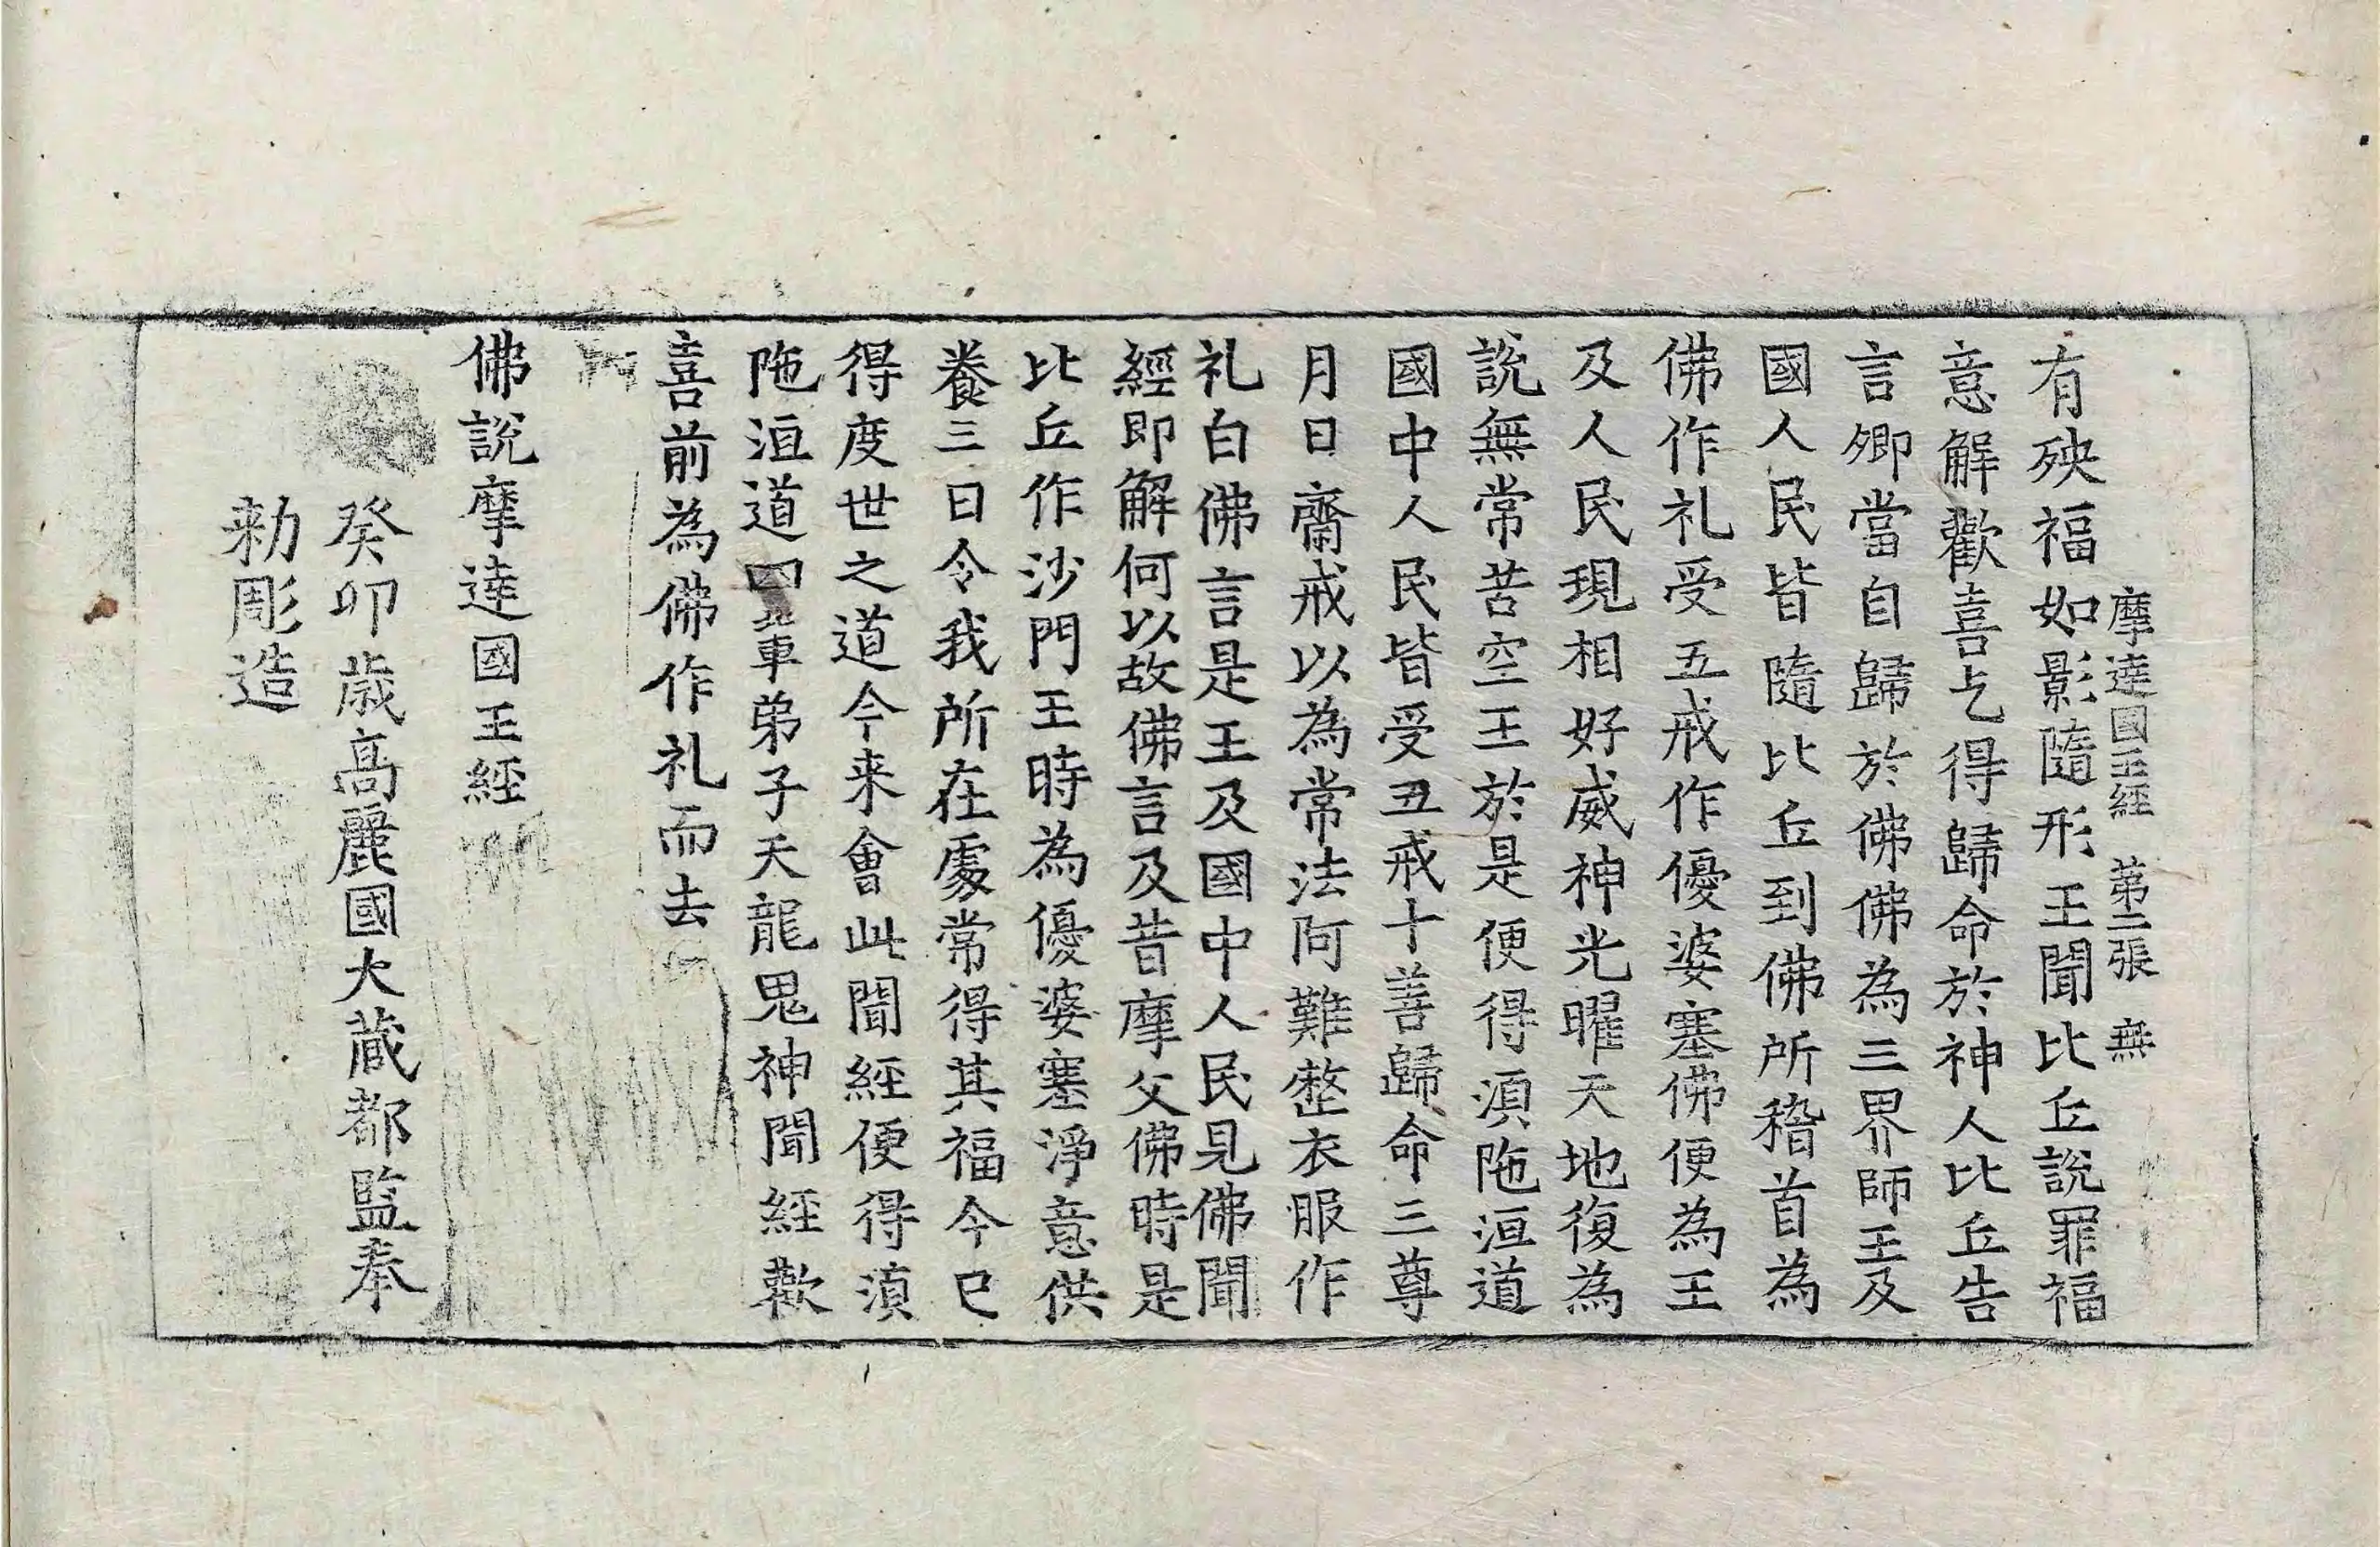 摩達國王經　第二張　無
有殃福如影隨形王聞比丘說罪福
意解歡喜乞得歸命於神人比丘告
言卿當自歸於佛佛為三界師王及
國人民皆隨比丘到佛所稽首為
佛作礼受五戒作優婆塞佛便為王
及人民現相好威神光曜天地復為
說無常苦空王於是便得湏陁洹道
國中人民皆受五戒十善歸命三尊
月日齋戒以為常法阿難整衣服作
礼白佛言是王及國中人民見佛聞
經即解何以故佛言及昔摩父佛時是
比丘作沙門王時為優婆塞淨意供
養三日令我所在處常得其福今已
得度世之道今来會此聞經便得湏
陁洹道四輩弟子天龍鬼神聞經歡
喜前為佛作礼而去
佛說摩達國王經
癸卯歲高麗國大藏都監奉
勑彫造